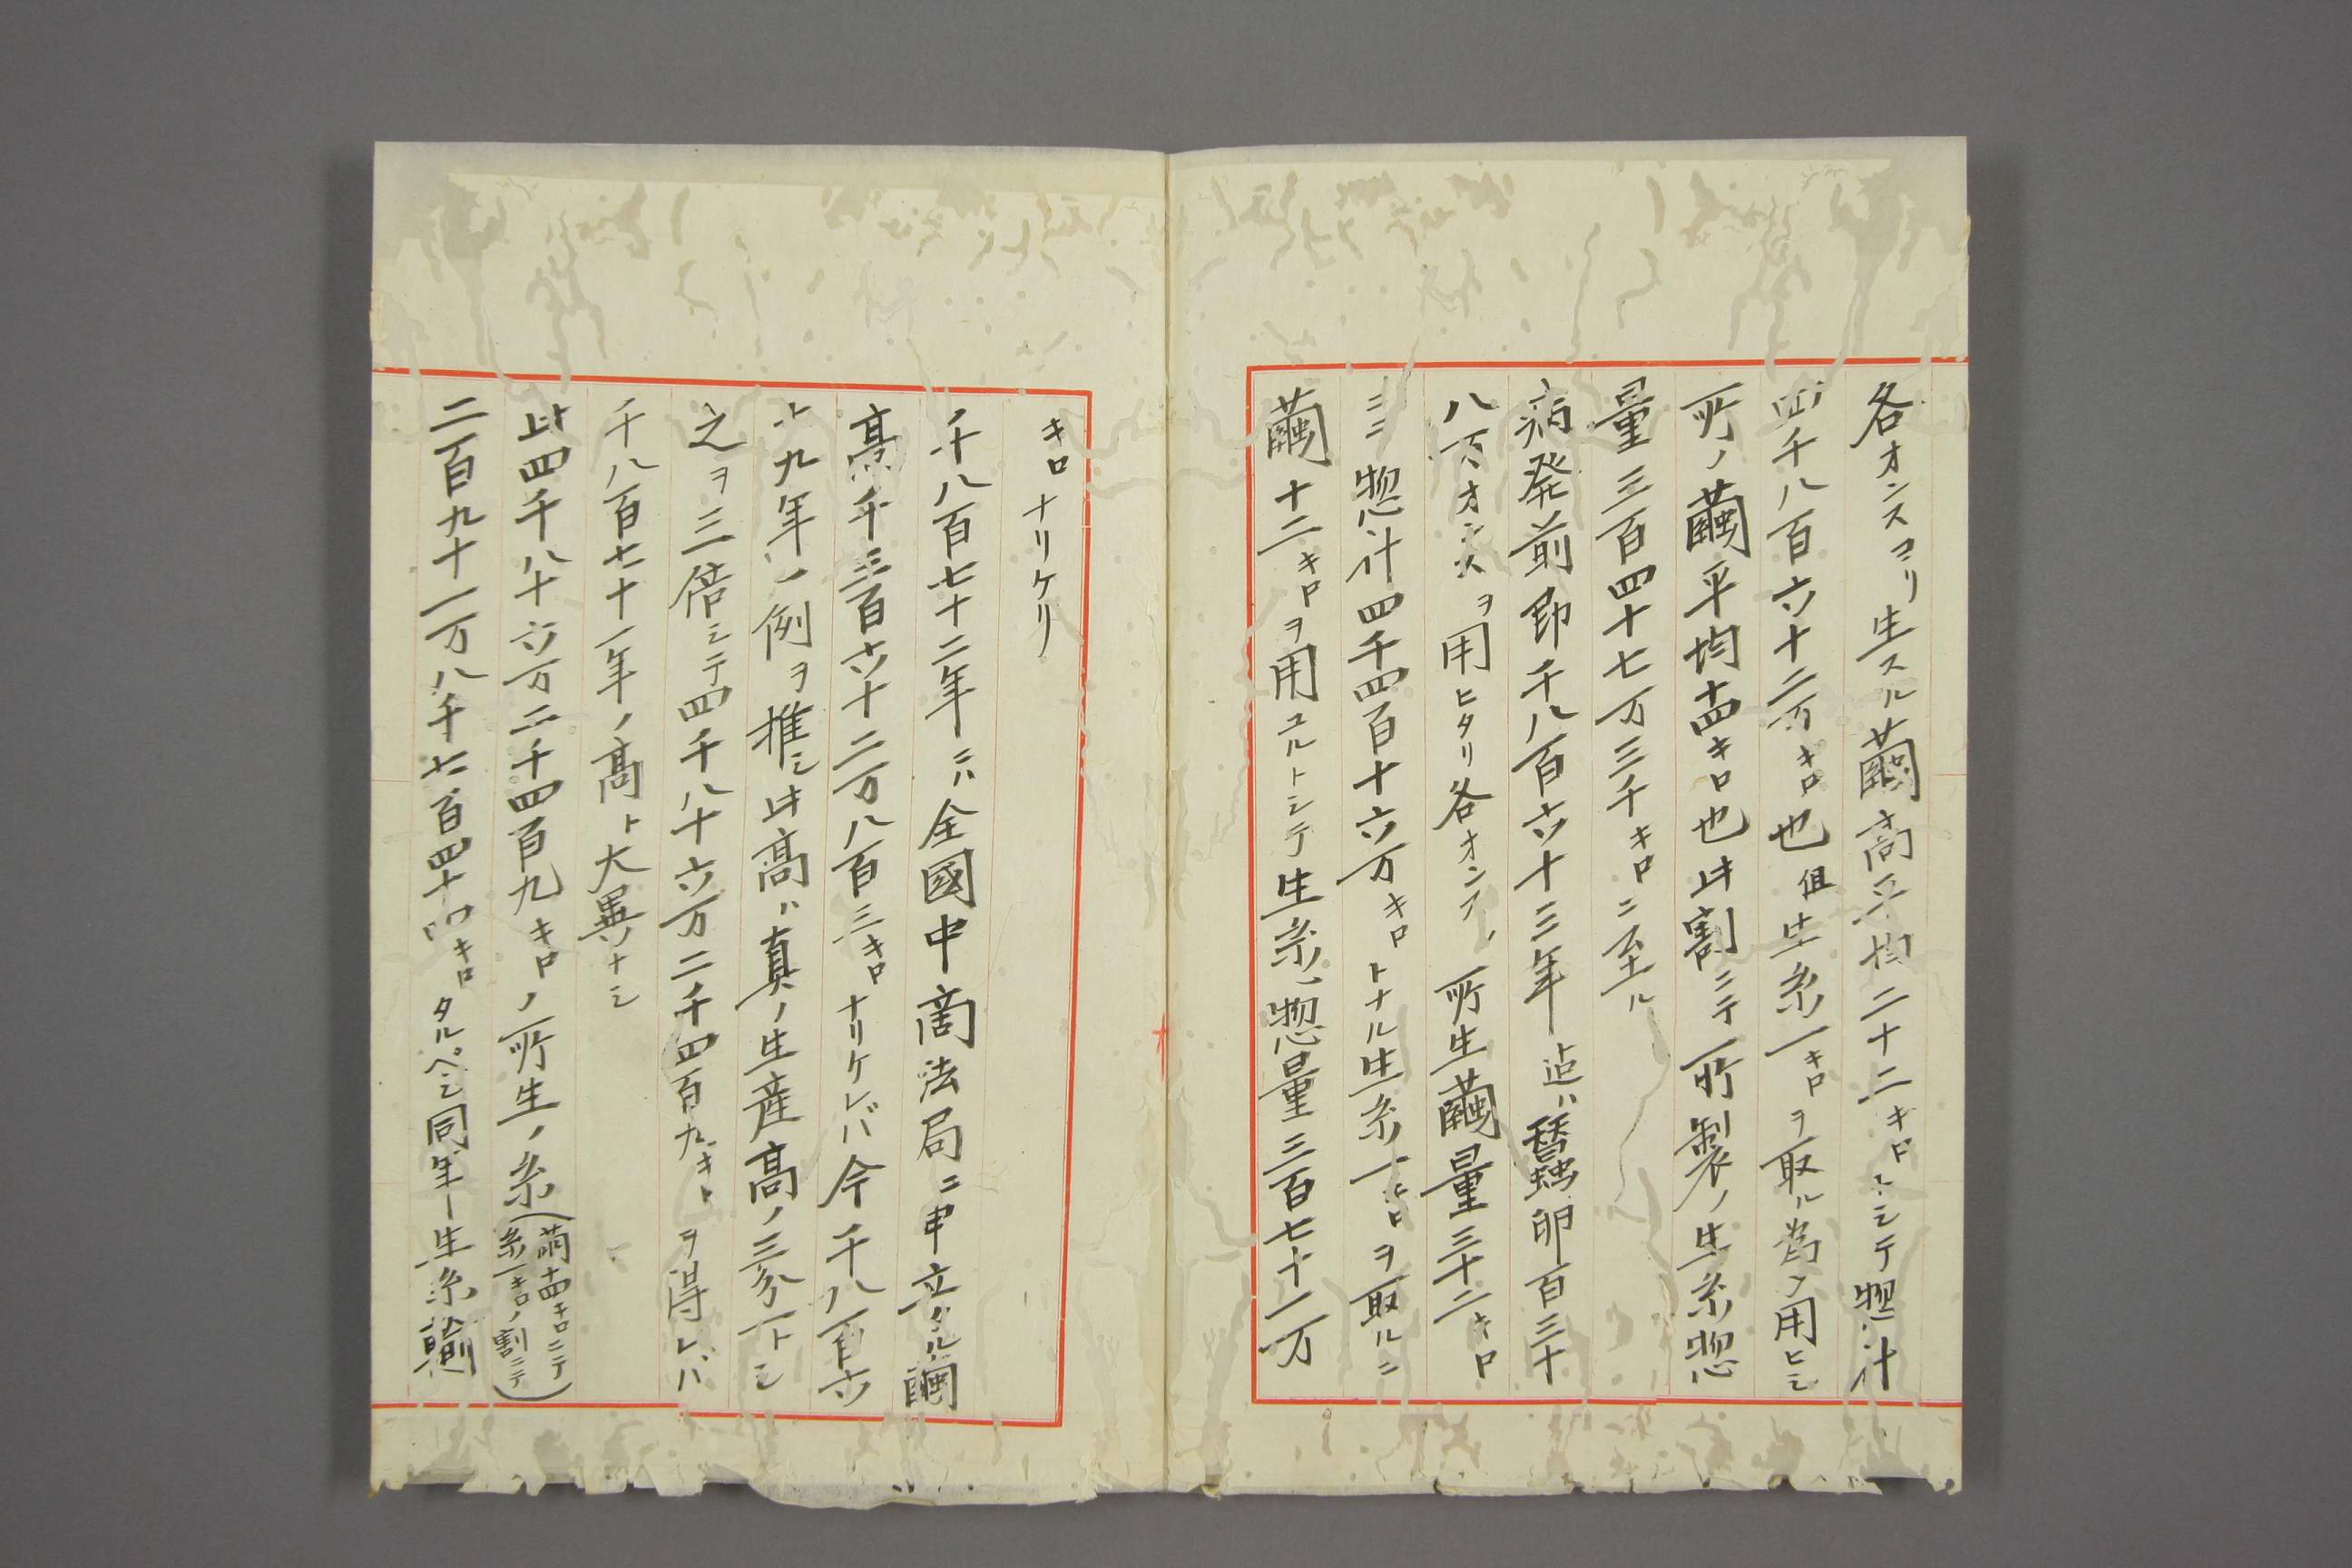 各オンスヨリ生スル繭高平均二十二キロトシテ惣計
四千八百六十二万キロ也但生糸一キロヲ取ル為ノ用ヒシ
所ノ繭平均十四キロ也此割ニテ所製ノ生糸惣
量三百四十七万三千キロニ至ル
病発前即千八百六十三年迠ハ蠶卵百三十
八万オンスヲ用ヒタリ各オンスノ所生繭量三十二キロ
ニ〆惣計四千四百十六万キロトナル生糸一キロヲ取ルニ
繭十二キロヲ用ユルトシテ生糸惣量三百七十一万
キロナリケリ
千八百七十二年ニハ全國中商法局ニ申立タル繭
高千三百六十二万八百三キロナリケレバ今千八百六
十九年ノ例ヲ推シ此高ハ真ノ生産高ノ三分一トシ
之ヲ三倍シテ四千八十六万二千四百九キロヲ得レバ
千八百七十一年ノ高ト大異ナシ
此四千八十六万二千四百九キロノ所生ノ糸(繭十四キロニテ
糸一キロノ割ニテ)
二百九十一万八千七百四十四キロタルベシ同年生糸輸